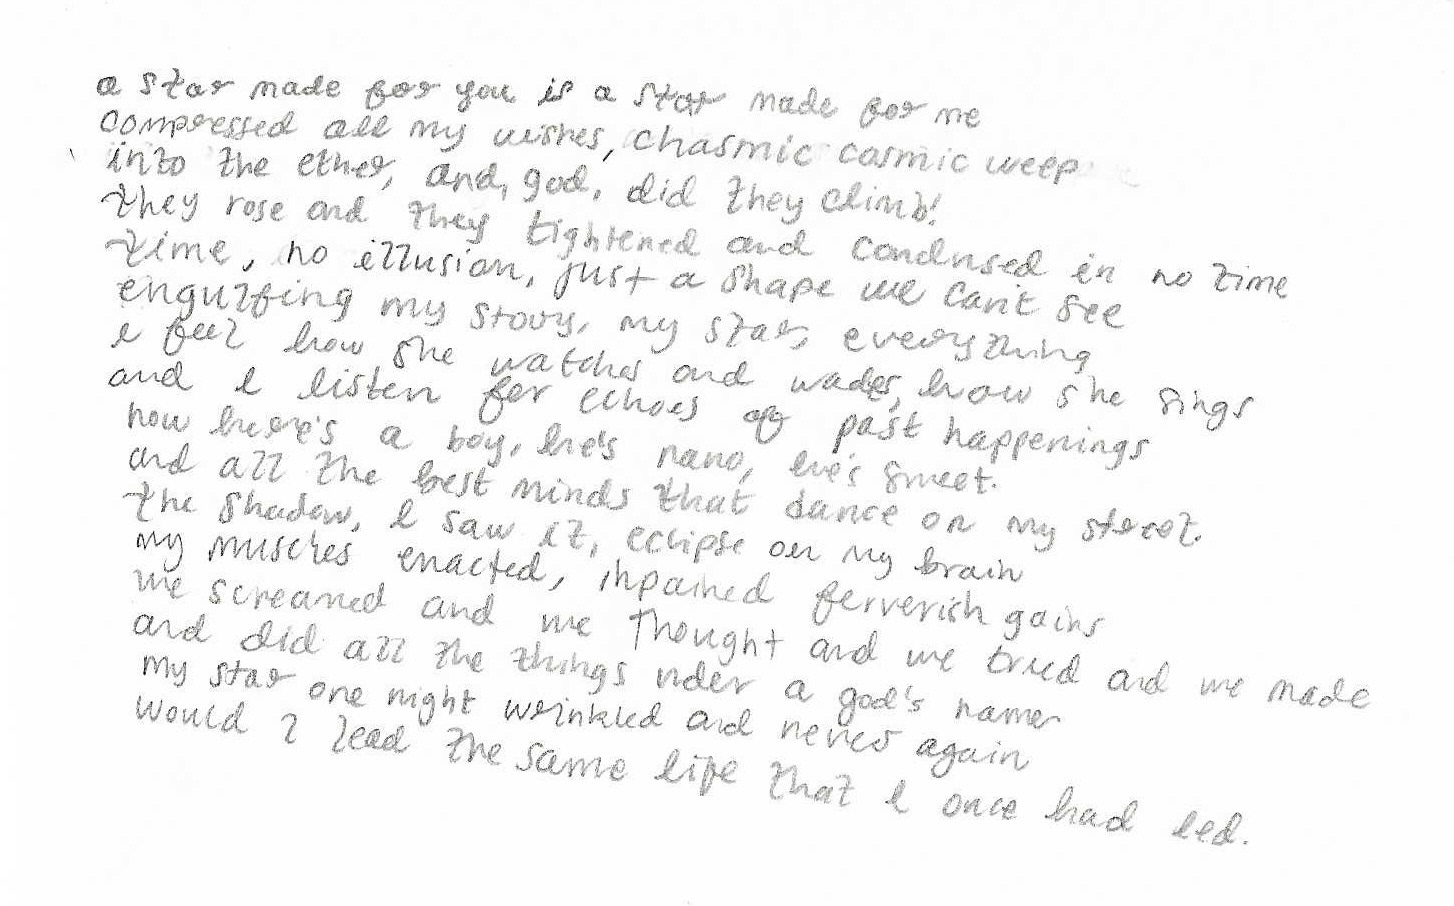 a star made for you is a star made for me
compressed all my wishes, chasmic cosmic weep
into the ether, and, god, did they climb!
they rose and they tightened and condnsed in no time
time, no illusion, just a shape we can't see
engulfing my story, my star, everything
I feel how she watches and wades, how she sings
and I listen for echoes of past happenings
how here's a boy, he's nano, he's sweet.
and all the best minds that dance on my street.
the shadow, I saw it, eclipse on my brain
my muscles enacted, inpained ferverish gains
we screamed and we thought and we tried and we made
and did all the things nder a god's name
my star one night wrinkled and never again
would I lead the same life that I once had led.